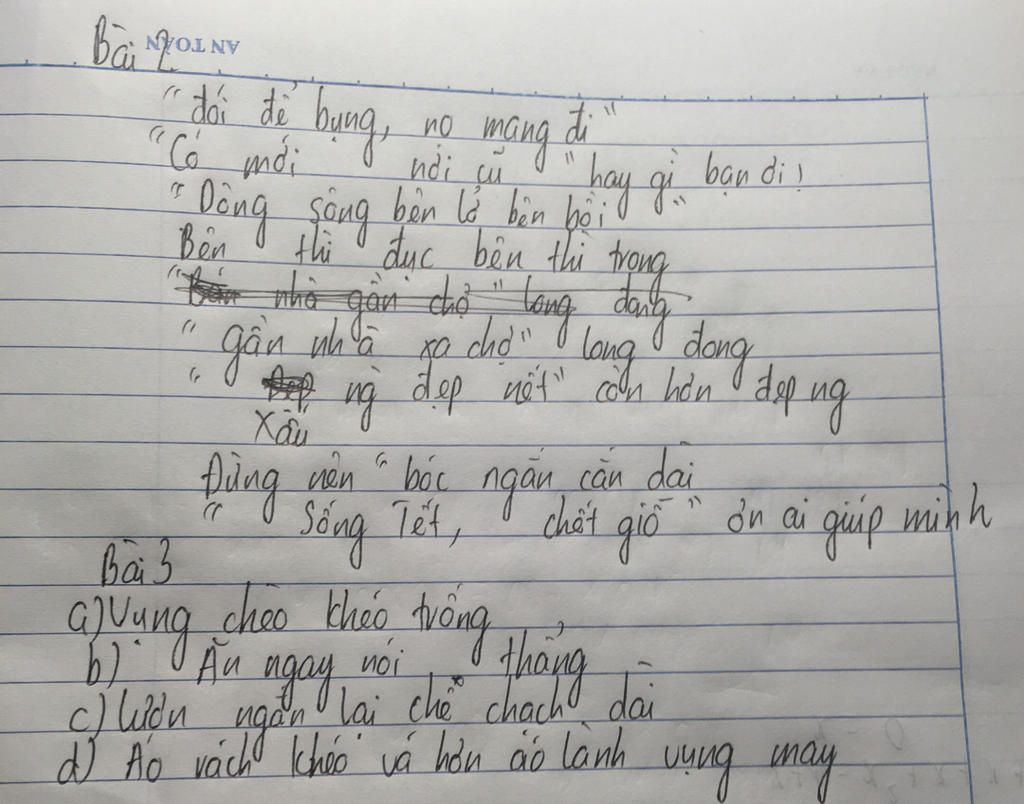 Bài 2
AN TOÀN
"đói để bụng, no mang đi"
"Có mới nới cũ" hay gì bạn ơi!
"Dòng sông bên lở bên bồi"
Bên thì đục bên thì trong
"Bán nhà gần chợ" long dong
"gần nhà xa chợ" long đong
" Đẹp ng đẹp nết" còn hơn đẹp ng
Xấu
Đừng nên "bóc ngắn cắn dài
"Sống Tết, chết giỗ" ơn ai giúp mình
Bài 3
a) Vụng chèo khéo trống
b) Ăn ngay nói thẳng
c) lươn ngắn lại chê chạch dài
d) Áo rách khéo vá hơn áo lành vụng may